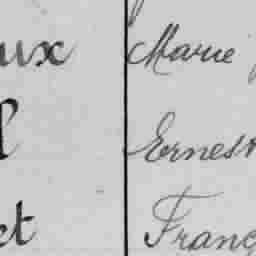 ux Marie
l Ernest
et Franç